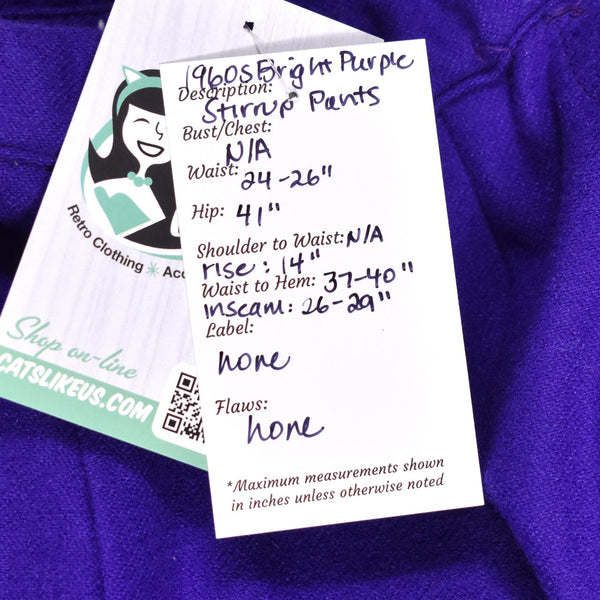 1960s Bright Purple
Description:
Stirrup Pants
Bust/Chest:
N/A
Waist: 24-26"
Hip: 41"
Shoulder to Waist: N/A
rise: 14"
Waist to Hem: 37-40"
inseam: 26-29"
Label:
none
Flaws:
none
*Maximum measurements shown
in inches unless otherwise noted
Retro Clothing
Shop on-line
CATSLIKEUS.COM